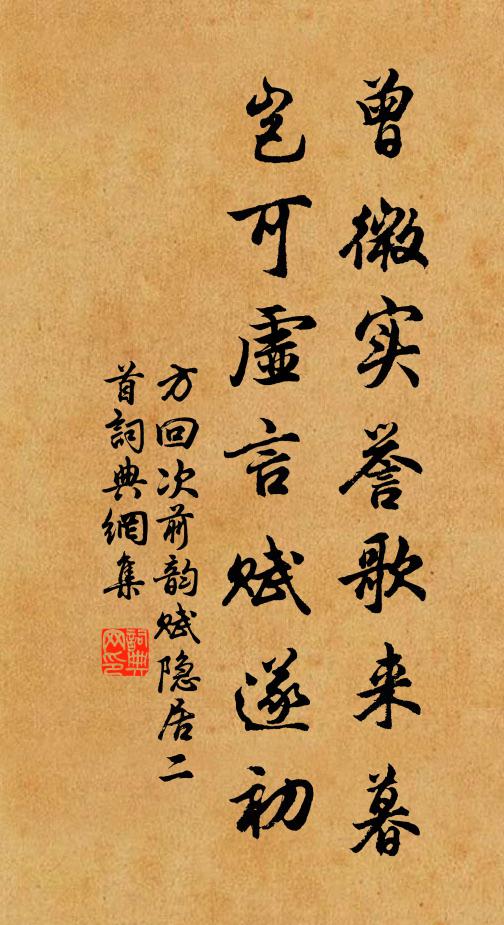 曾微实誉歌来暮
岂可虚言赋遂初
方回次前韵赋隐居二
首詞典網集
詞典网印